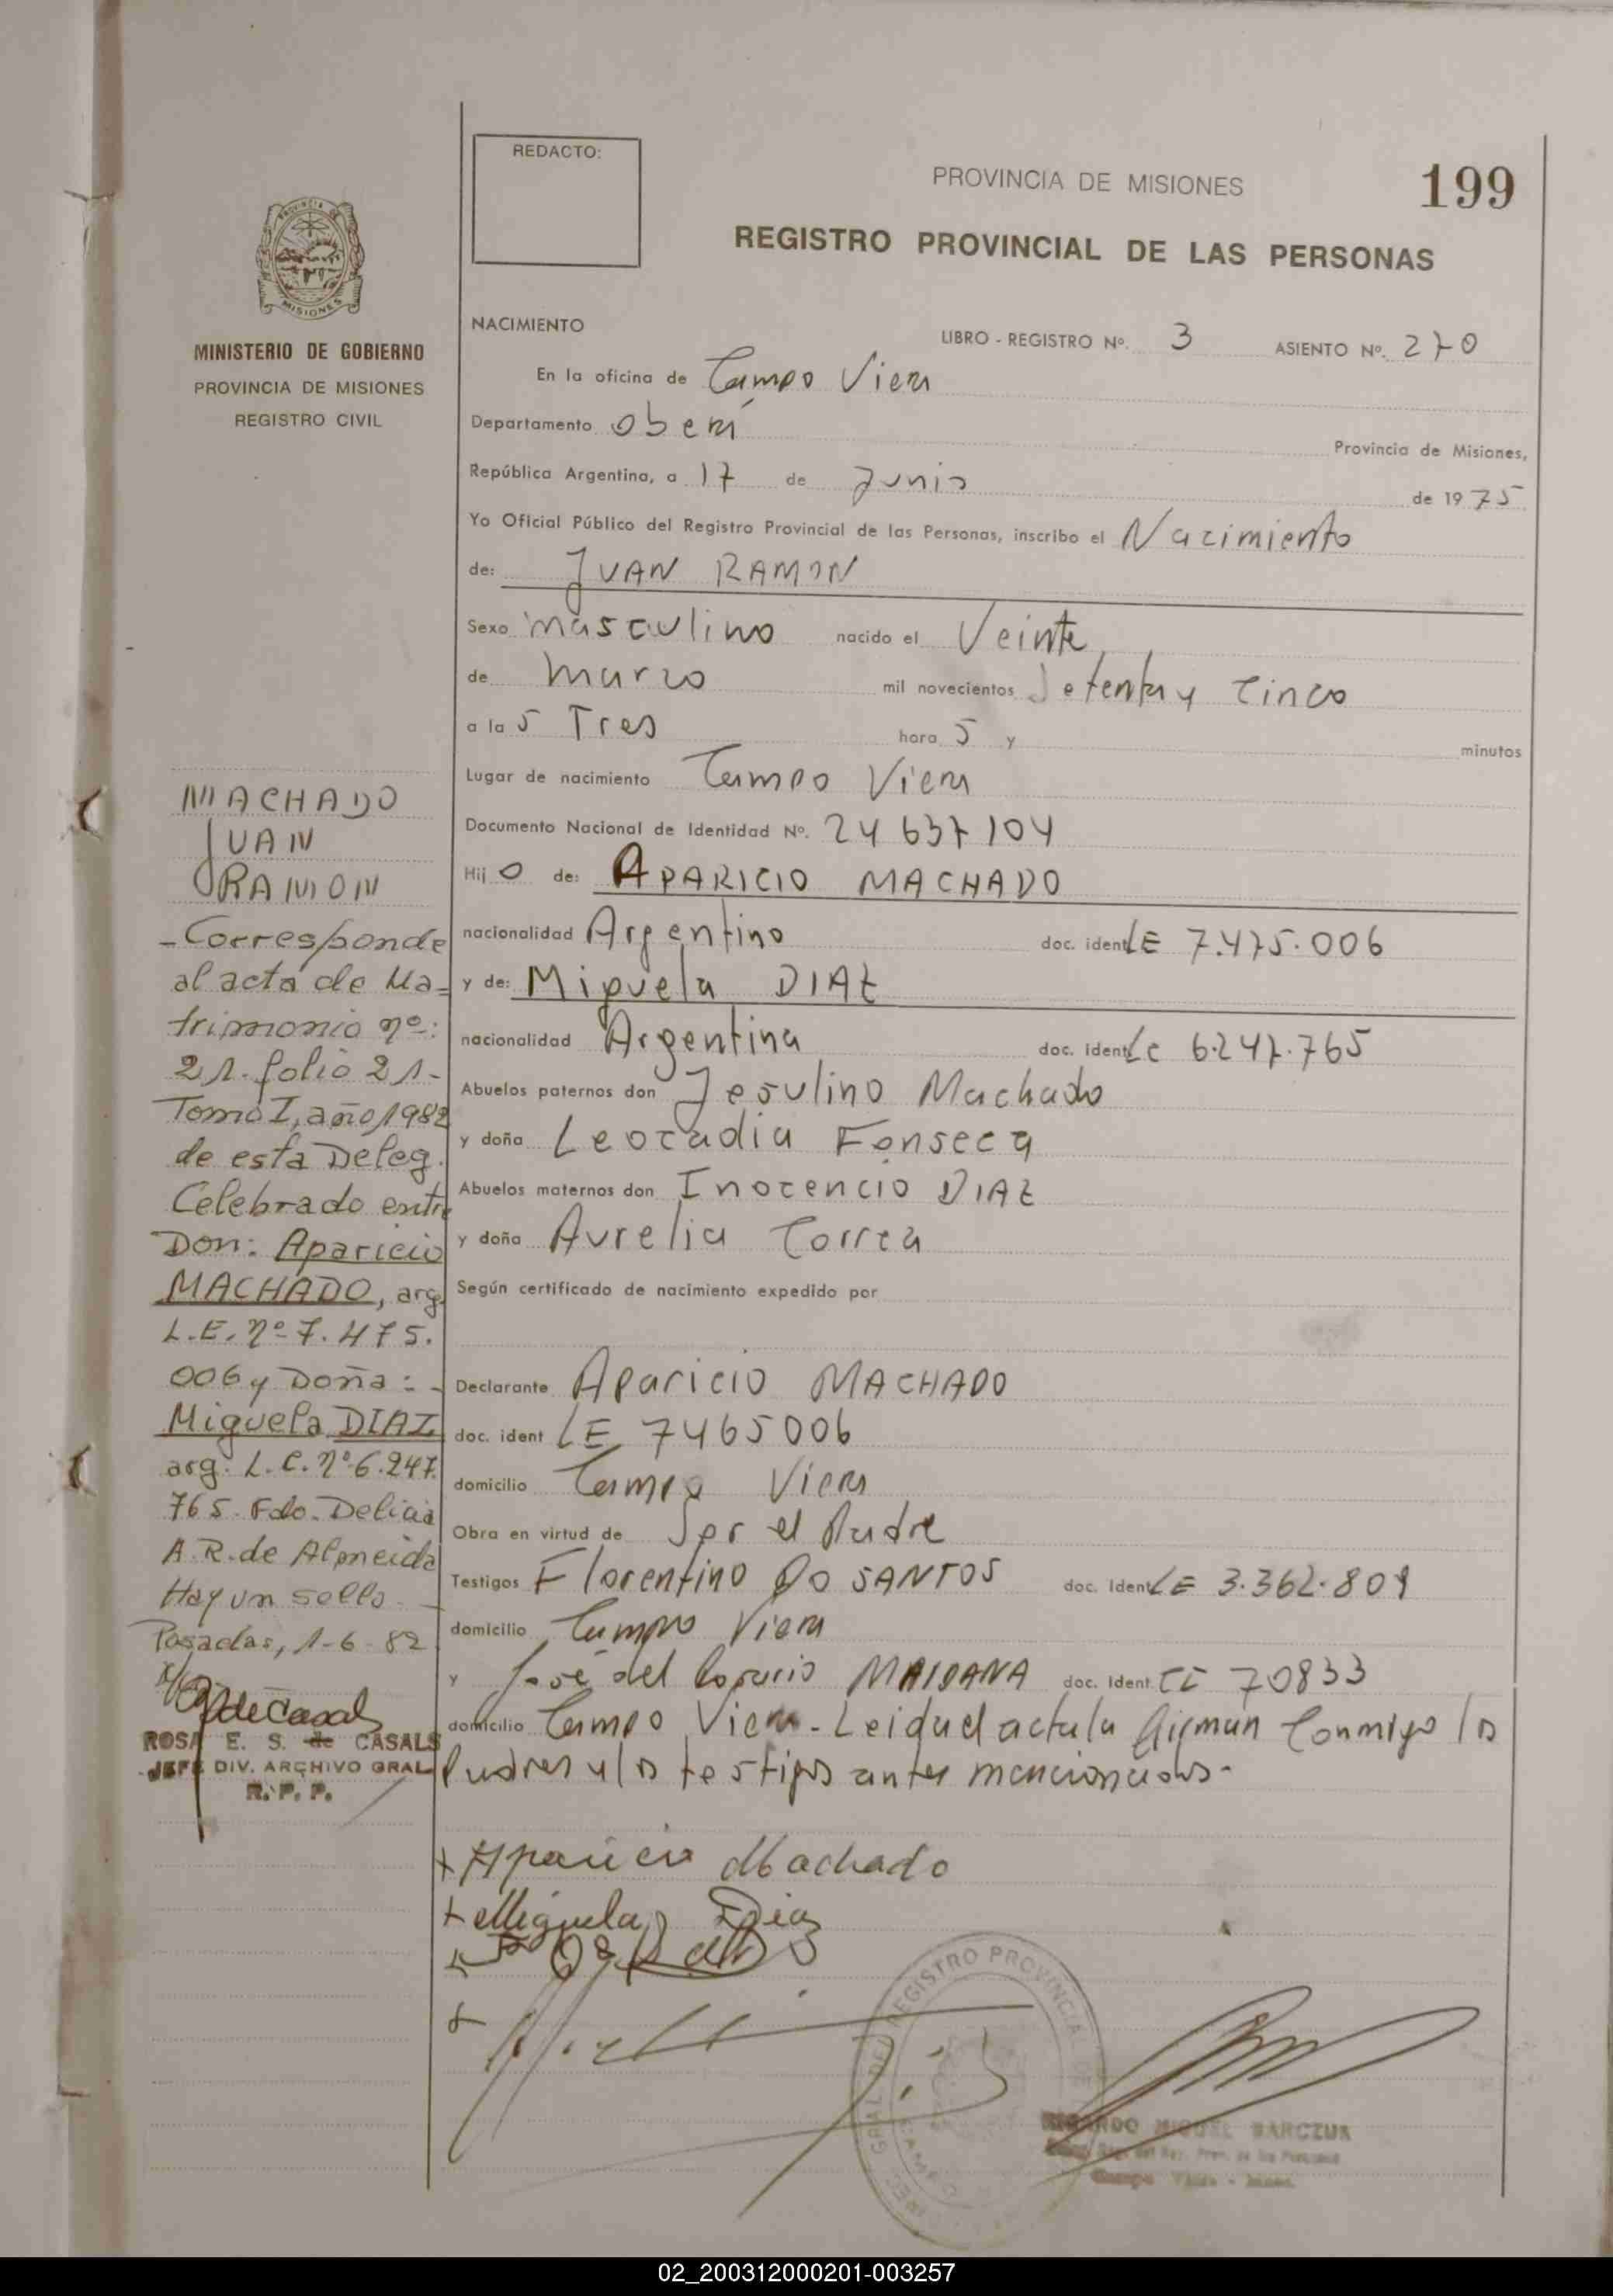 REDACTO:
PROVINCIA DE MISIONES
199
REGISTRO PROVINCIAL DE LAS PERSONAS
PROVINCIA DE
MISIONES
MINISTERIO DE GOBIERNO
PROVINCIA DE MISIONES
REGISTRO CIVIL
NACIMIENTO
LIBRO - REGISTRO Nº. 3 ASIENTO Nº. 270
En la oficina de Campo Viera
Departamento Oberá Provincia de Misiones,
República Argentina, a 17 de Junio de 1975
Yo Oficial Público del Registro Provincial de las Personas, inscribo el Nacimiento
de: JUAN RAMON
Sexo masculino nacido el Veinte
de marzo mil novecientos Setenta y Cinco
a la s Tres hora s y minutos
Lugar de nacimiento Campo Viera
Documento Nacional de Identidad Nº. 24 637 104
Hij o de: APARICIO MACHADO
nacionalidad Argentino doc. ident LE 7.475.006
y de: Miguela DIAZ
nacionalidad Argentina doc. ident Lc 6.247.765
Abuelos paternos don Jesulino Machado
y doña Leocadia Fonseca
Abuelos maternos don Inocencio DIAZ
y doña Aurelia Correa
Según certificado de nacimiento expedido por
Declarante Aparicio MACHADO
doc. ident LE 7465006
domicilio Campo Viera
Obra en virtud de Ser el Padre
Testigos Florentino DO SANTOS doc. Ident LE 3.362.801
domicilio Campo Viera
y José del Rosario MAIDANA doc. Ident. CI 70833
domicilio Campo Viera - Leida el acta la firman Conmigo los
Padres y los testigos antes mencionados.-
MACHADO
JUAN
RAMON
- Corresponde
al acta de Ma=
trimonio nº:
21. folio 21-
Tomo I, año 1982
de esta Deleg.
Celebrado entre
Don: Aparicio
MACHADO, arg.
L.E. nº 7.475.
006 y Doña: -
Miguela DIAZ
arg. L.C. nº 6.247.
765. Fdo. Delicia
A.R. de Almeida
Hay un sello. -
Posadas, 1-6-82
ROSA E. S. de CASALS
JEFE DIV. ARCHIVO GRAL
R. P. P.
+ Aparicio Machado
+ Miguela Diaz
REGISTRO PROVINCIAL
RICARDO MIGUEL BARCZUK
02_200312000201-003257